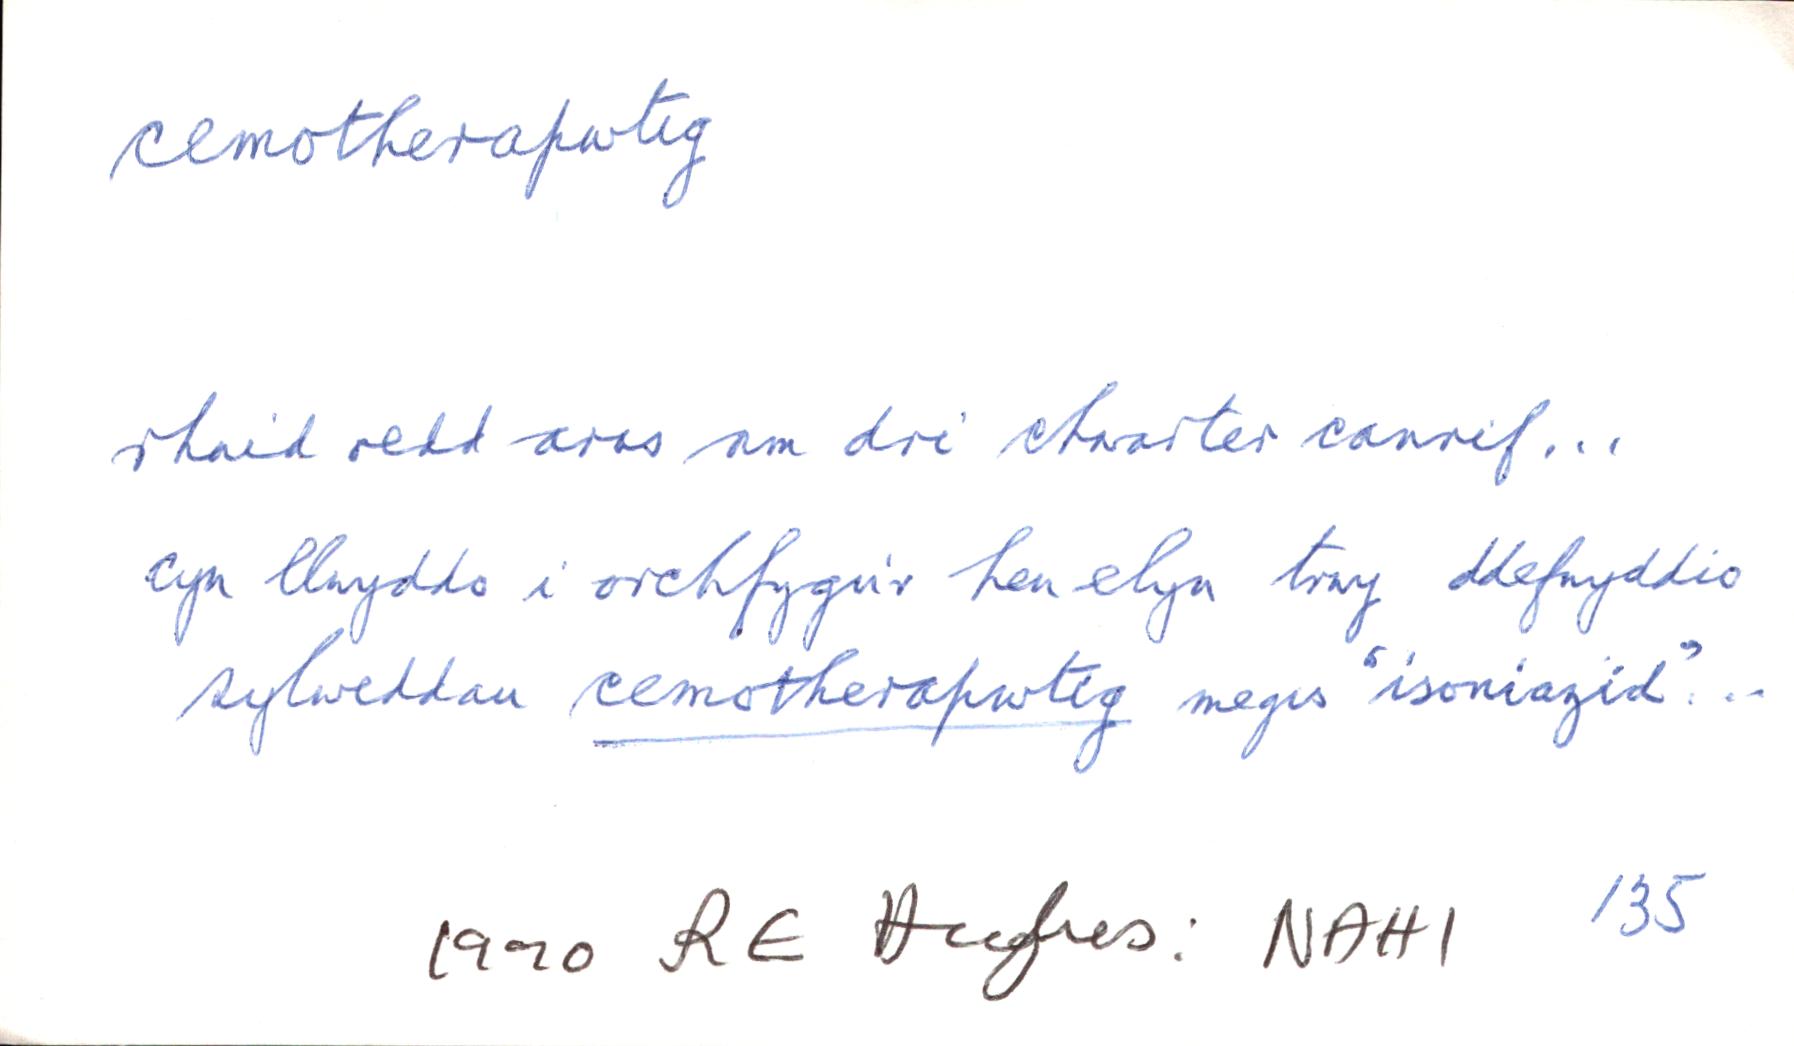 cemotherapwtig
rhaid oedd aros am dri chwarter canrif...
cyn llwyddo i orchfygu'r hen elyn trwy ddefnyddio
sylweddau cemotherapwtig megis "isoniazid"...
1990 RE Hughes: NAHI 135